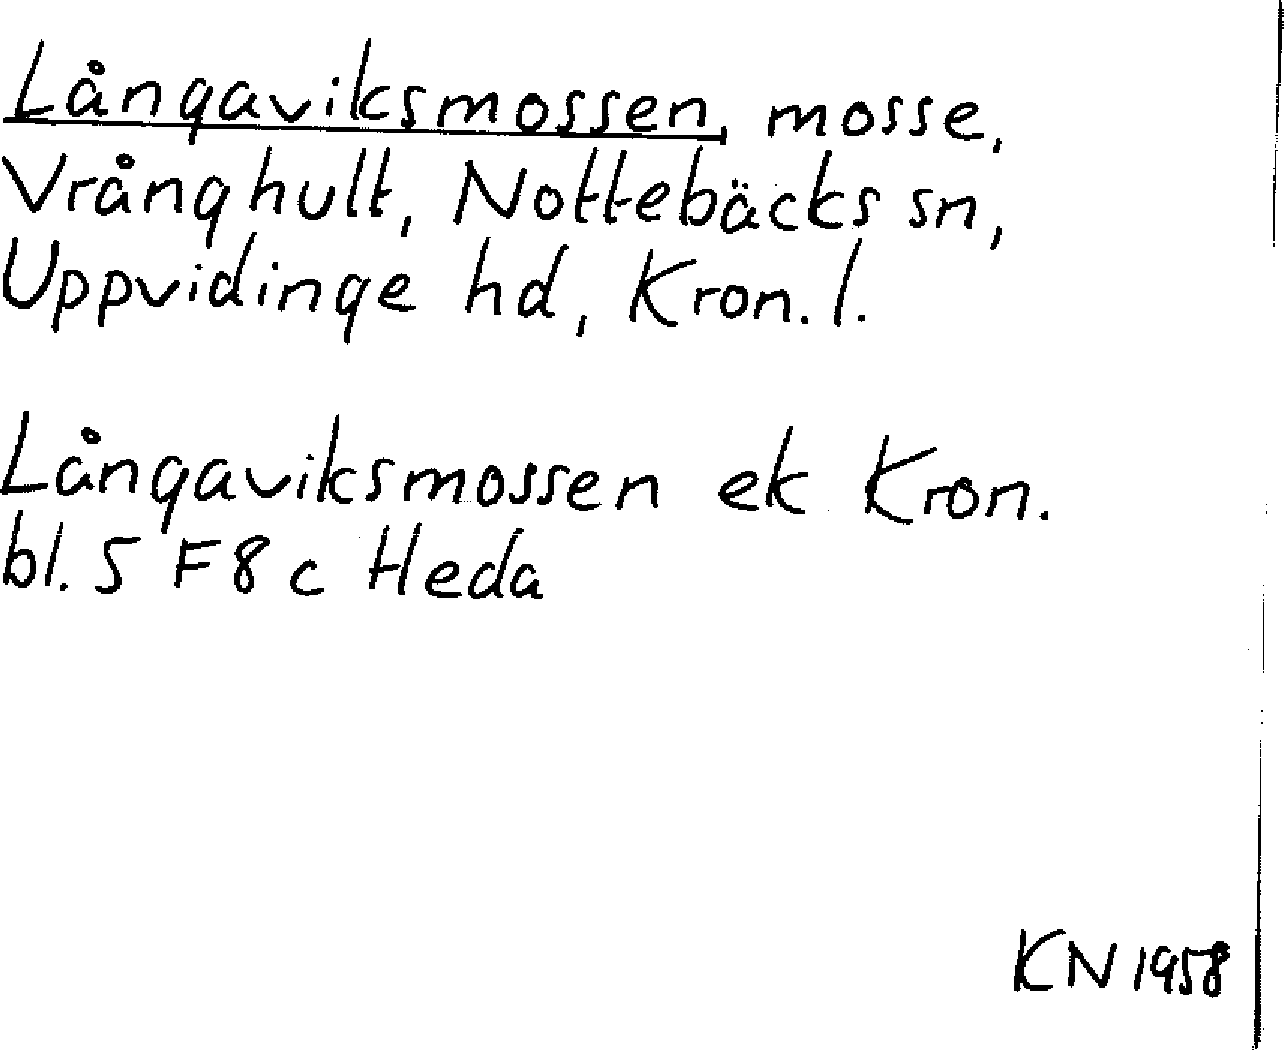 Långaviksmossen, mosse,
Vrånghult, Nottebäcks sn,
Uppvidinge hd, Kron. l.
Långaviksmossen ek Kron.
bl. 5 F 8 c Heda
KN 1958